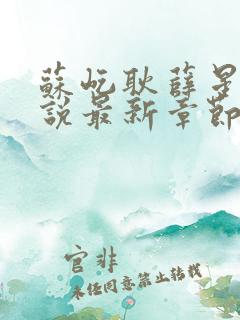 蘇屹耿薛星
說最新章節
官非
未經同意禁止轉載